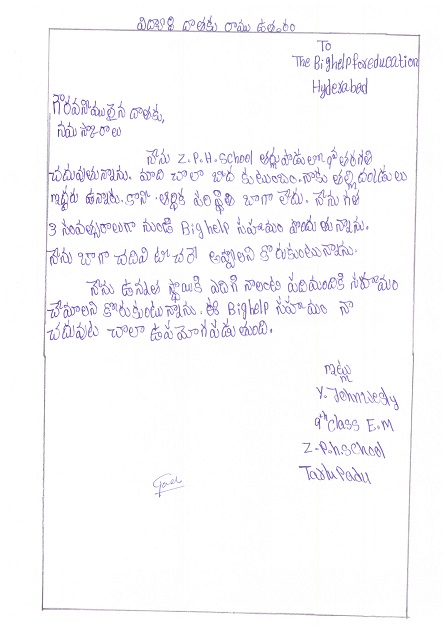 విద్యార్థి దాతకు రాయు ఉత్తరం
To
The Bighelpforeducation
Hyderabad
గౌరవనీయులైన దాతకు,
నమస్కారాలు
నేను Z.P.H.School తర్లుపాడులో 9వ తరగతి
చదువుతున్నాను. మాది చాలా బీద కుటుంబం. నాకు తల్లిదండ్రులు
ఇద్దరు ఉన్నారు. కానీ ఆర్థిక పరిస్థితి బాగా లేదు. నేను గత
3 సంవత్సరాలుగా నుండి Bighelp సహాయం పొందుతున్నాను.
నేను బాగా చదివి టీచర్ అవ్వాలని కోరుకుంటున్నాను.
నేను ఉన్నత స్థాయికి ఎదిగి నాలాంటి పదిమందికి సహాయం
చేయాలని కోరుకుంటున్నాను. ఈ Bighelp సహాయం నా
చదువుకు చాలా ఉపయోగపడుతుంది.
ఇట్లు
Y. Johnwesly
9th class E.M
Z.P.h.school
Tarlupadu